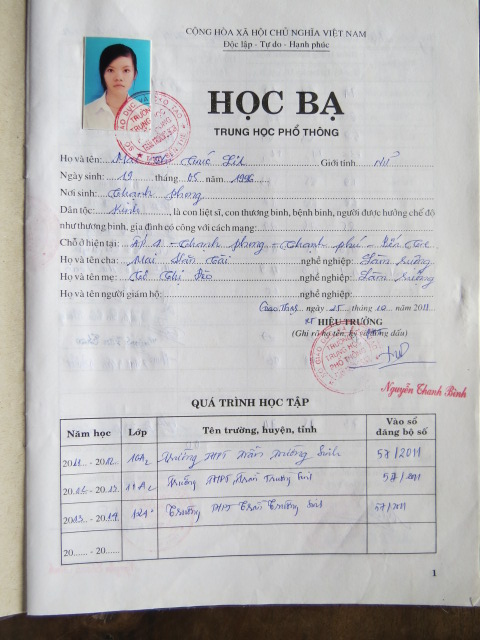 CỘNG HÒA XÃ HỘI CHỦ NGHĨA VIỆT NAM
Độc lập - Tự do - Hạnh phúc
HỌC BẠ
TRUNG HỌC PHỔ THÔNG
Họ và tên: Mai Giới tính Nữ
Ngày sinh: 19 tháng 05 năm 1996
Nơi sinh: Thạnh Phong
Dân tộc: Kinh, là con liệt sĩ, con thương binh, bệnh binh, người được hưởng chế độ
như thương binh, gia đình có công với cách mạng:
Chỗ ở hiện tại: Ấp 1 - Thạnh Phong - Thạnh Phú - Bến Tre
Họ và tên cha: Mai Văn Tài nghề nghiệp: Làm ruộng
Họ và tên mẹ: Thị nghề nghiệp: Làm ruộng
Họ và tên người giám hộ: nghề nghiệp:
Giao Thạnh, ngày 25 tháng 10 năm 2011
KT HIỆU TRƯỞNG
(Ghi rõ họ tên, ký và đóng dấu)
Nguyễn Thanh Bình
QUÁ TRÌNH HỌC TẬP
Năm học Lớp Tên trường, huyện, tỉnh Vào sổ đăng bộ số
2011 - 2012 10A2 Trường THPT Trần Trường Sinh 57/2011
2012 - 2013 11A2 Trường THPT Trần Trường Sinh 57/2011
2013 - 2014 12A Trường THPT Trần Trường Sinh 57/2011
20...... - 20......
1